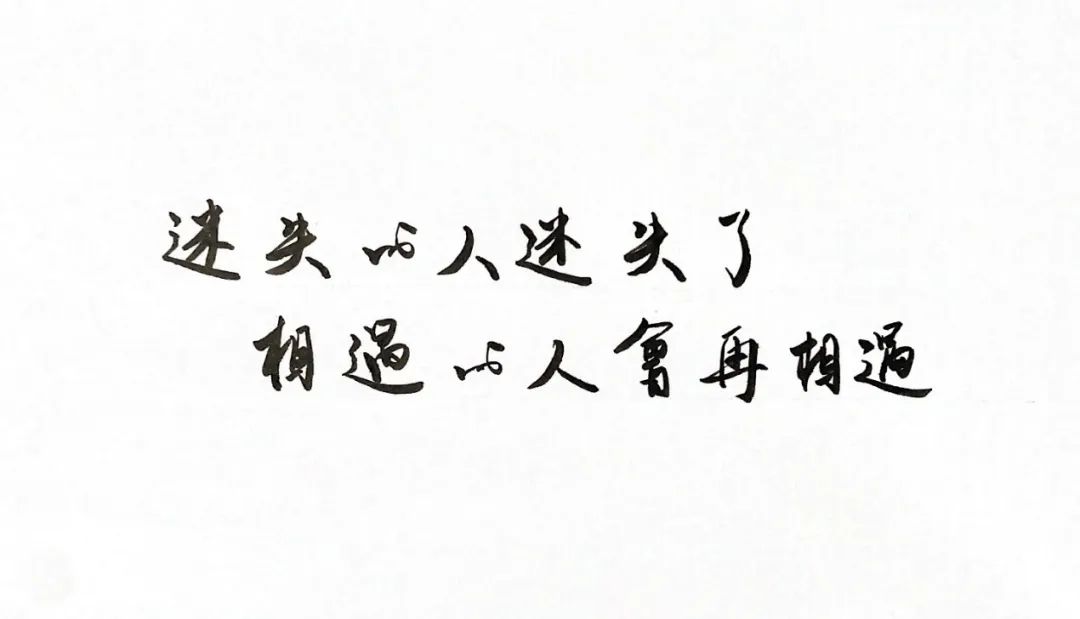 迷失的人迷失了
相遇的人會再相遇